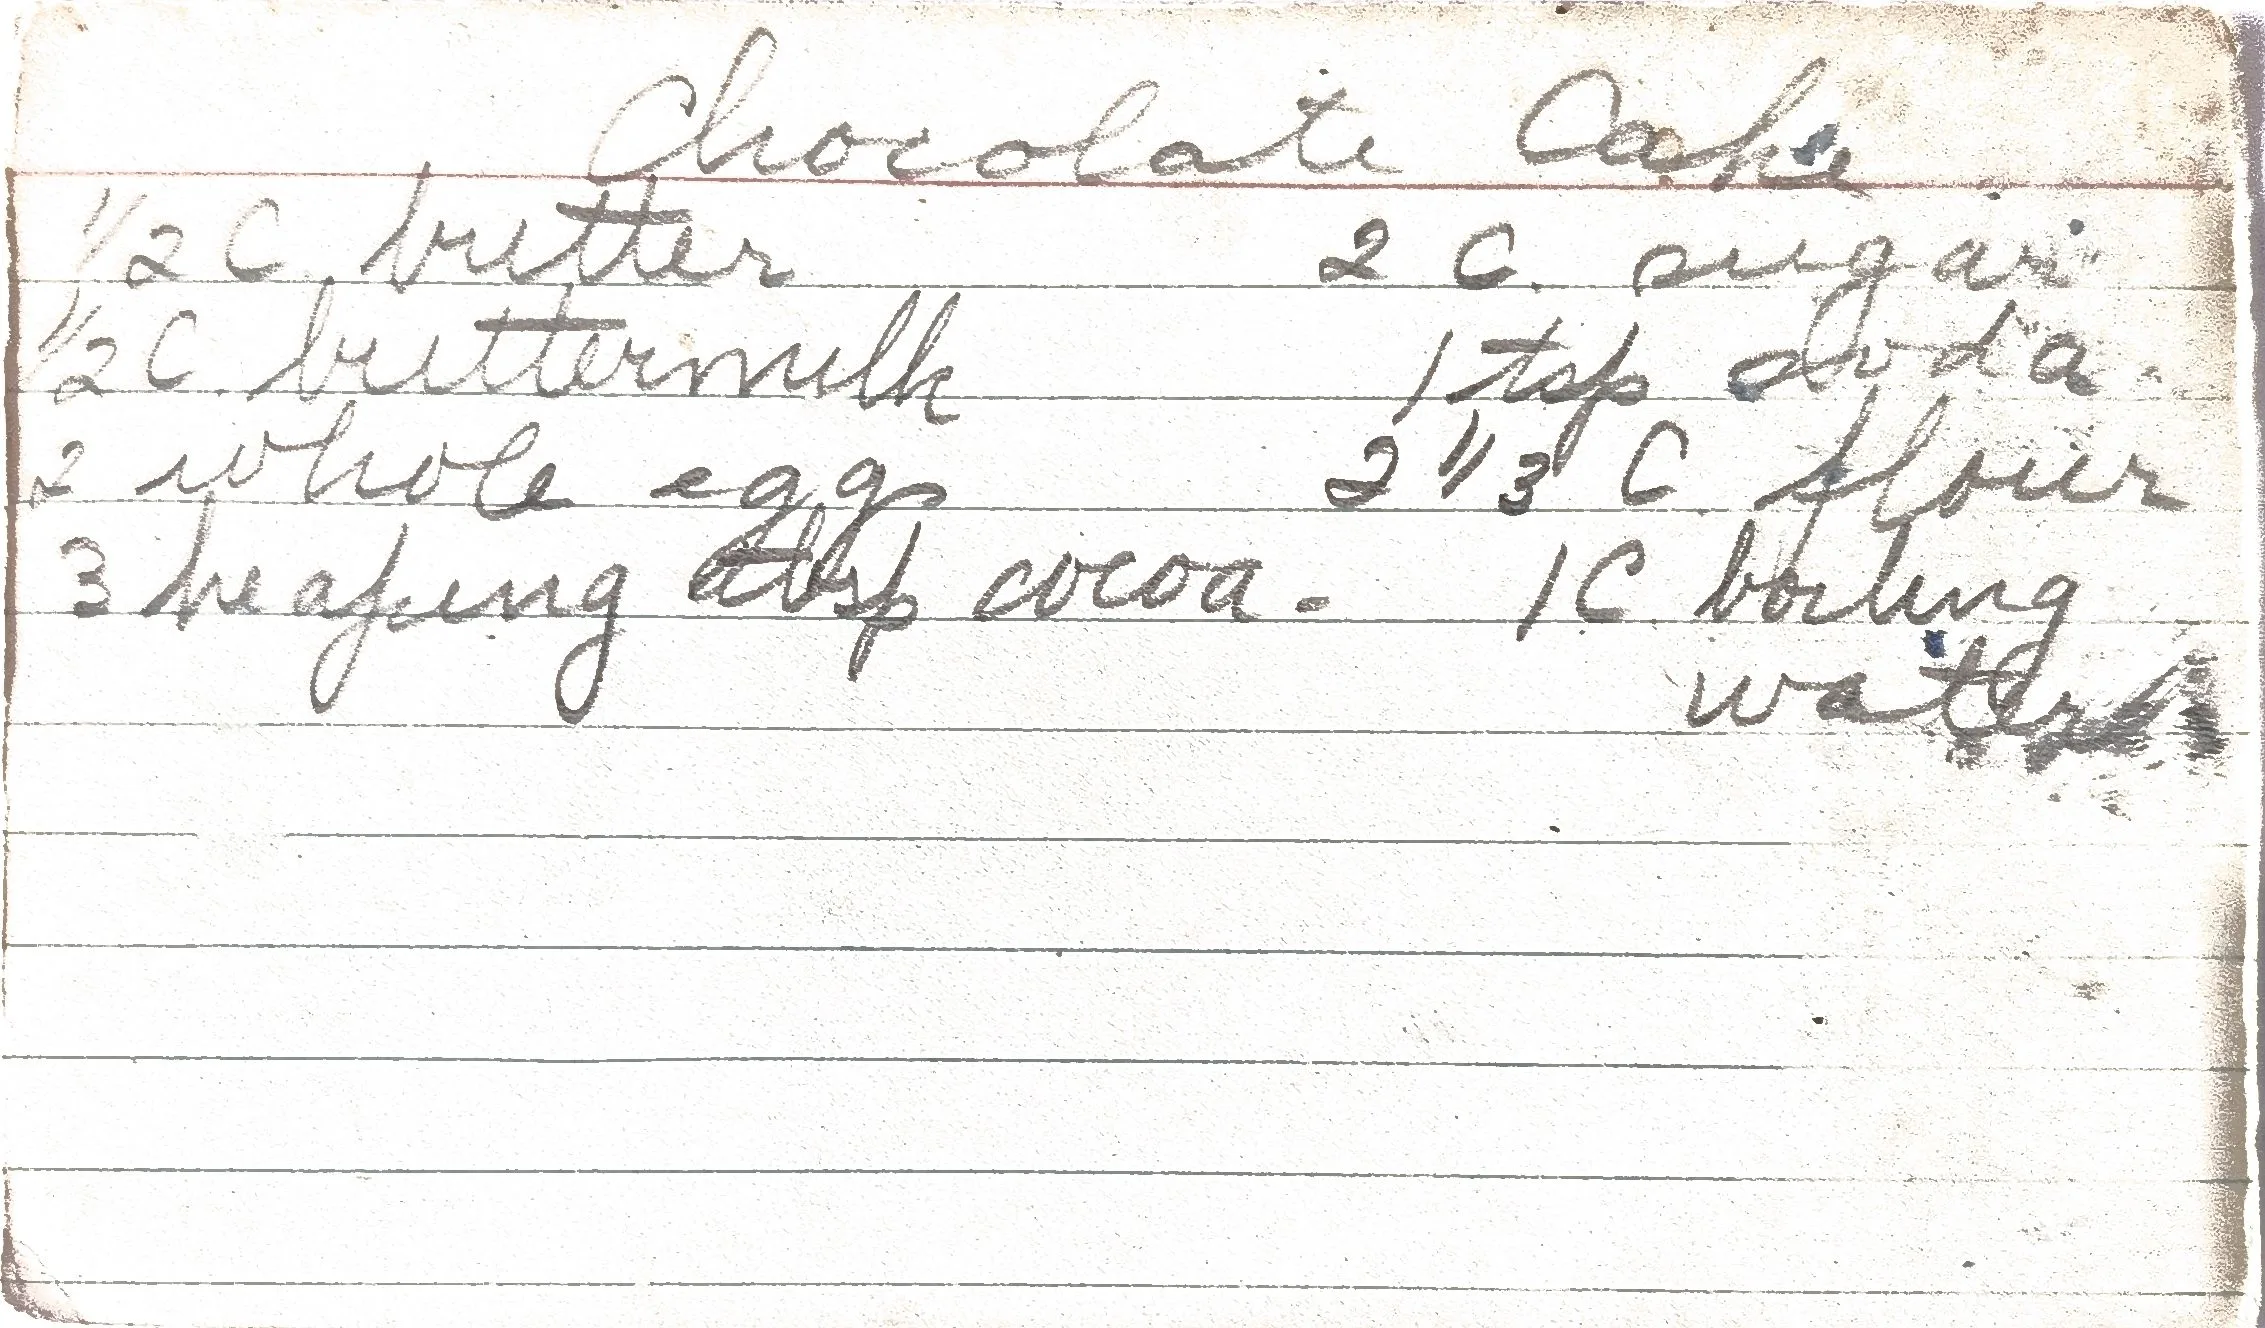 Chocolate Cake
1/2 C. butter 2 C. sugar
1/2 C. buttermilk 1 tsp soda.
2 whole egg 2 1/3 C flour
3 heaping tbsp cocoa. 1C boiling
water